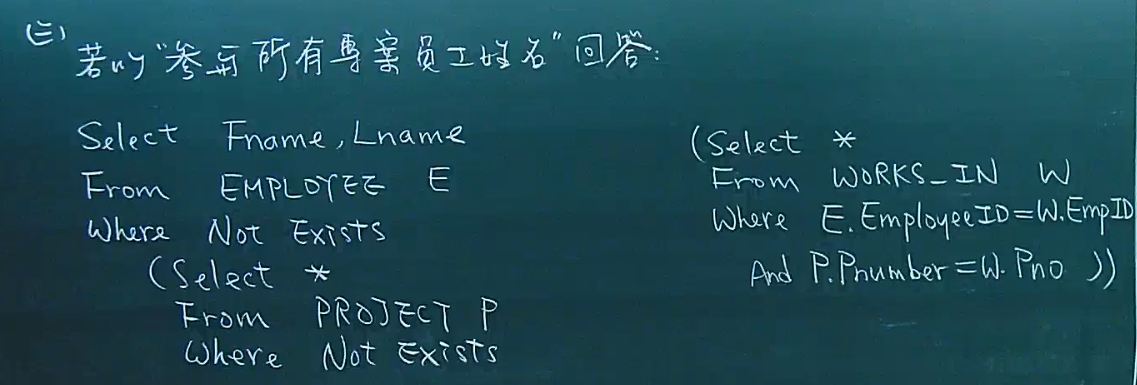 (三)
若以"參與所有專案員工姓名"回答:
Select Fname, Lname
From EMPLOYEE E
Where Not Exists
(Select *
From PROJECT P
Where Not Exists
(Select *
From WORKS_IN W
Where E.EmployeeID=W.EmpID
And P.Pnumber=W.Pno ))